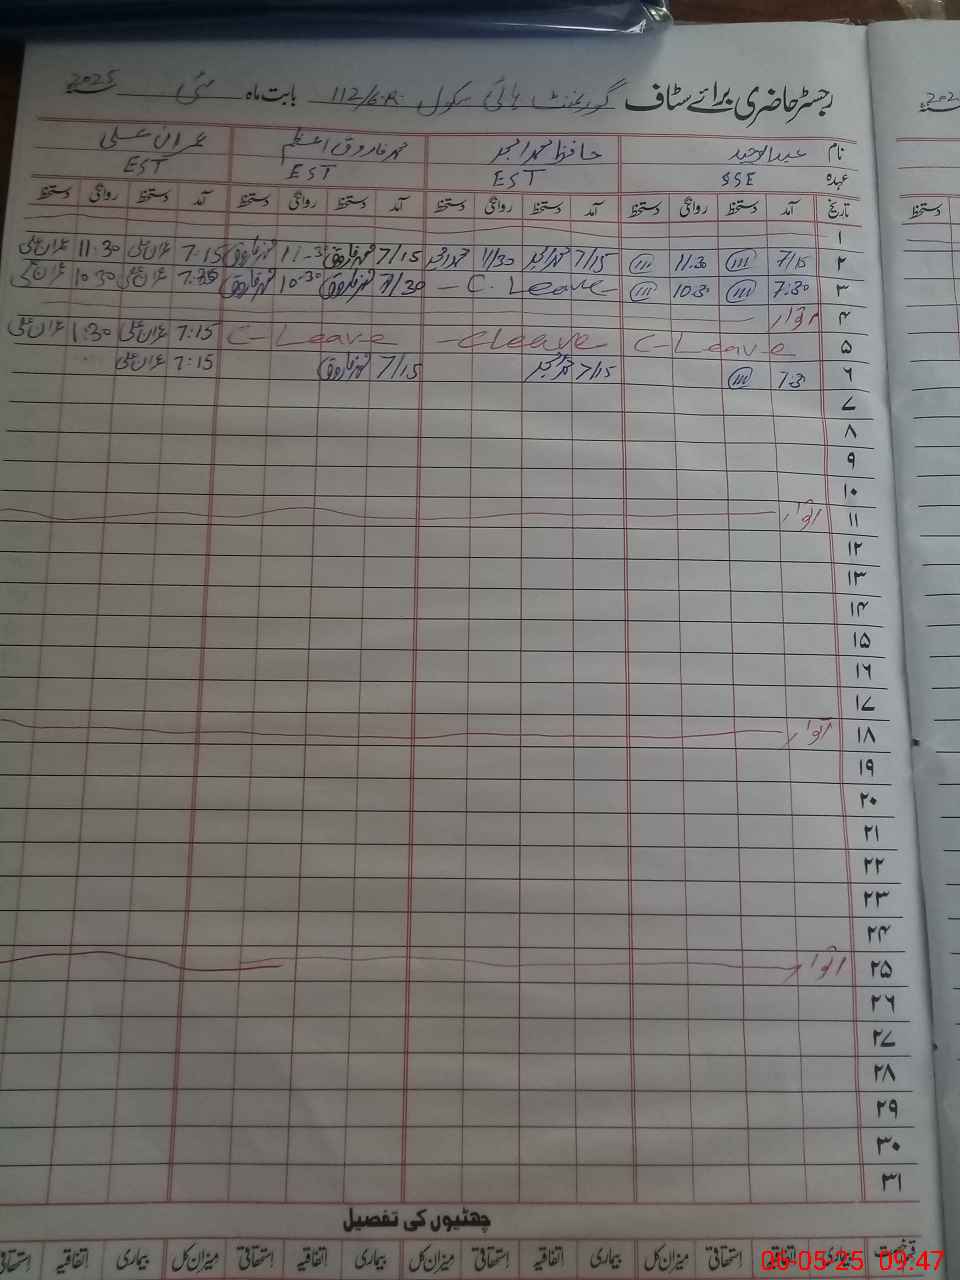 رجسٹر حاضری برائے سٹاف گورنمنٹ ہائی سکول 112/6-R بابت ماہ مئی 2025
نام عبدالوحید حافظ محمد امجد محمد فاروق اعظم عمران علی
عہدہ SSE EST EST EST
تاریخ آمد دستخط روانگی دستخط آمد دستخط روانگی دستخط آمد دستخط روانگی دستخط آمد دستخط روانگی دستخط
۱
۲ 7/15 11.30 7/15 محمد امجد 11/30 محمد امجد 7/15 محمد فاروق 11-3 محمد فاروق 7-15 عمران علی 11:30 عمران علی
۳ 7:30 10:30 C. Leave 7/30 محمد فاروق 10:30 محمد فاروق عمران علی 10:30 عمران علی
۴ اتوار
۵ C-Leave C leave C-Leave 7:15 عمران علی 1:30 عمران علی
۶ 7:3 7/15 محمد امجد 7/15 محمد فاروق 7:15 عمران علی
۷
۸
۹
۱۰
۱۱ اتوار
۱۲
۱۳
۱۴
۱۵
۱۶
۱۷
۱۸ اتوار
۱۹
۲۰
۲۱
۲۲
۲۳
۲۴
۲۵ اتوار
۲۶
۲۷
۲۸
۲۹
۳۰
۳۱
چھٹیوں کی تفصیل
قسم رخصت بیماری اتفاقیہ استحقاقی میزان کل بیماری اتفاقیہ استحقاقی میزان کل بیماری اتفاقیہ استحقاقی میزان کل بیماری اتفاقیہ استحقاقی
06-05-25 09:47